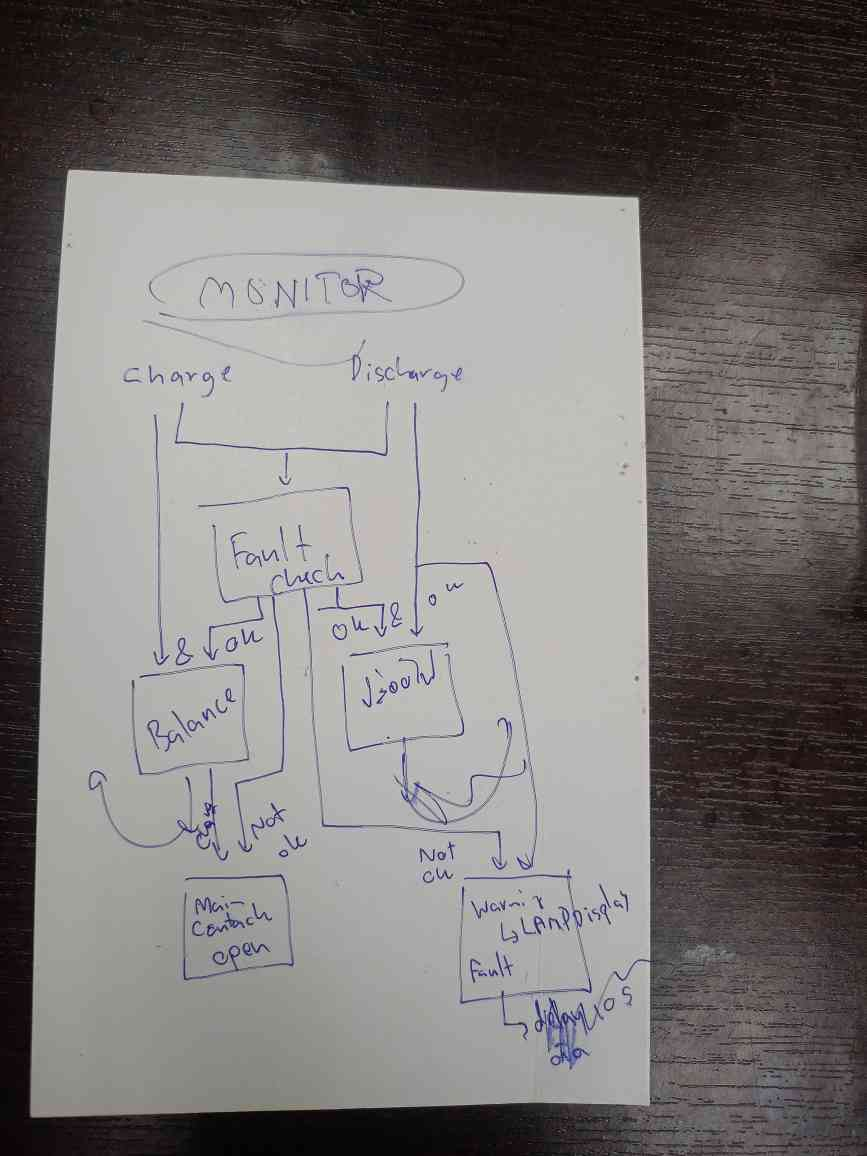 MONITOR
Charge
Discharge
Fault
check
& OK
OK &
OK
Balance
จ่ายไฟ
Not
OK
Not
OK
Main
Contack
open
Warnir
↳ LAMP Display
Fault
delay 10 s